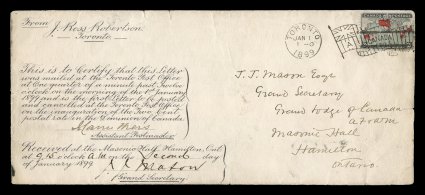 From
J. Ross Robertson
Toronto.
This is to Certify that this Letter
was mailed at the Toronto Post Office
at One quarter of a minute past Twelve
o'clock on the morning of the 1st January
1899 and is the first letter to be posted
and cancelled at the Toronto Post Office
on the inauguration of the two Cent
postal rate in the Dominion of Canada.
Assistant Postmaster
Received at the Masonic Hall, Hamilton, Ont
at 9 o'clock A.M. on the Second day
of January 1899.
J. J. Mason
Grand Secretary
TORONTO
JAN 1
1899
CANADA POSTAGE
J. J. Mason Esqr
Grand Secretary
Grand Lodge of Canada
A F & A M
Masonic Hall
Hamilton
Ontario.